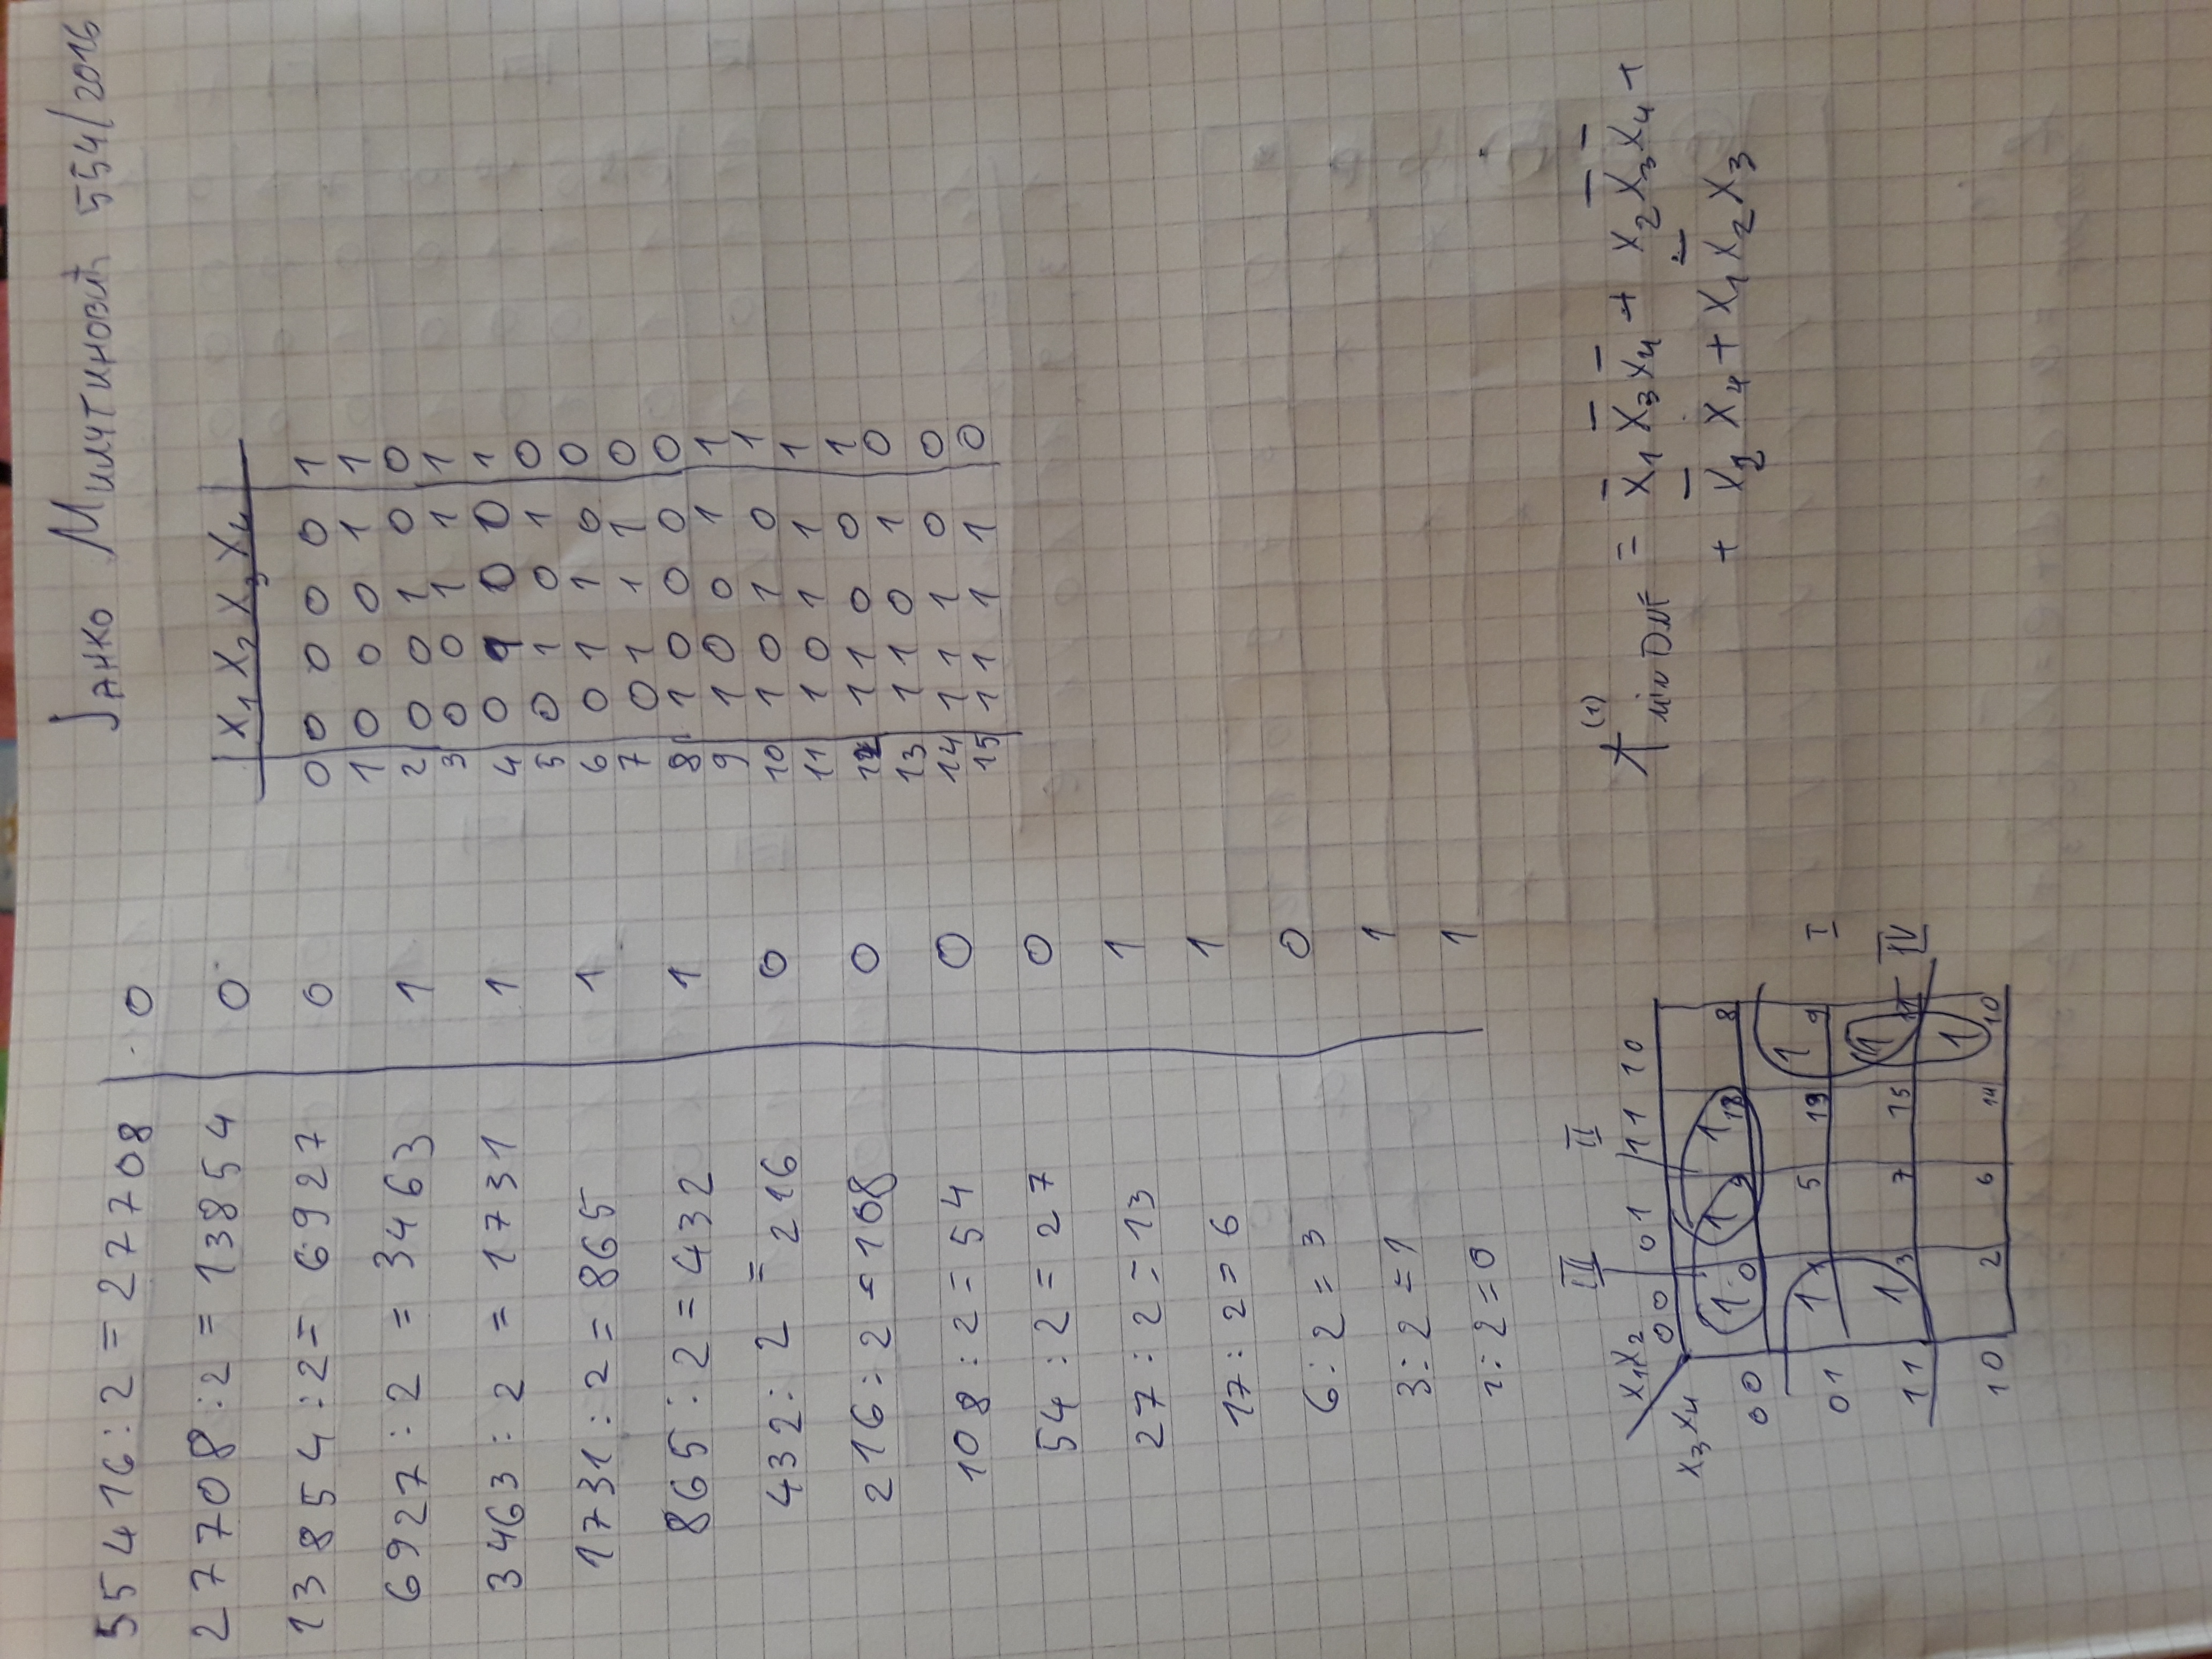 Јанко Милутиновић 554/2016
55416 : 2 = 27708 | 0
27708 : 2 = 13854 | 0
13854 : 2 = 6927 | 0
6927 : 2 = 3463 | 1
3463 : 2 = 1731 | 1
1731 : 2 = 865 | 1
865 : 2 = 432 | 1
432 : 2 = 216 | 0
216 : 2 = 108 | 0
108 : 2 = 54 | 0
54 : 2 = 27 | 0
27 : 2 = 13 | 1
17 : 2 = 6 | 1
6 : 2 = 3 | 0
3 : 2 = 1 | 1
1 : 2 = 0 | 1
| X₁ X₂ X₃ X₄ |
0 | 0 0 0 0 | 1
1 | 0 0 0 1 | 1
2 | 0 0 1 0 | 0
3 | 0 0 1 1 | 1
4 | 0 1 0 0 | 1
5 | 0 1 0 1 | 0
6 | 0 1 1 0 | 0
7 | 0 1 1 1 | 0
8 | 1 0 0 0 | 0
9 | 1 0 0 1 | 1
10 | 1 0 1 0 | 1
11 | 1 0 1 1 | 1
12 | 1 1 0 0 | 1
13 | 1 1 0 1 | 0
14 | 1 1 1 0 | 0
15 | 1 1 1 1 | 0
III II
X₁X₂ 00 01 11 10
X₃X₄
00 1 0 1 1 8
01 1 1 5 13 1 9 I
11 1 3 7 15 1 11 IV
10 2 6 14 1 10
f⁽¹⁾ min DNF = x̄₁ x̄₃ x̄₄ + x₂ x̄₃ x̄₄ +
+ x̄₂ x₄ + x₁ x̄₂ x₃